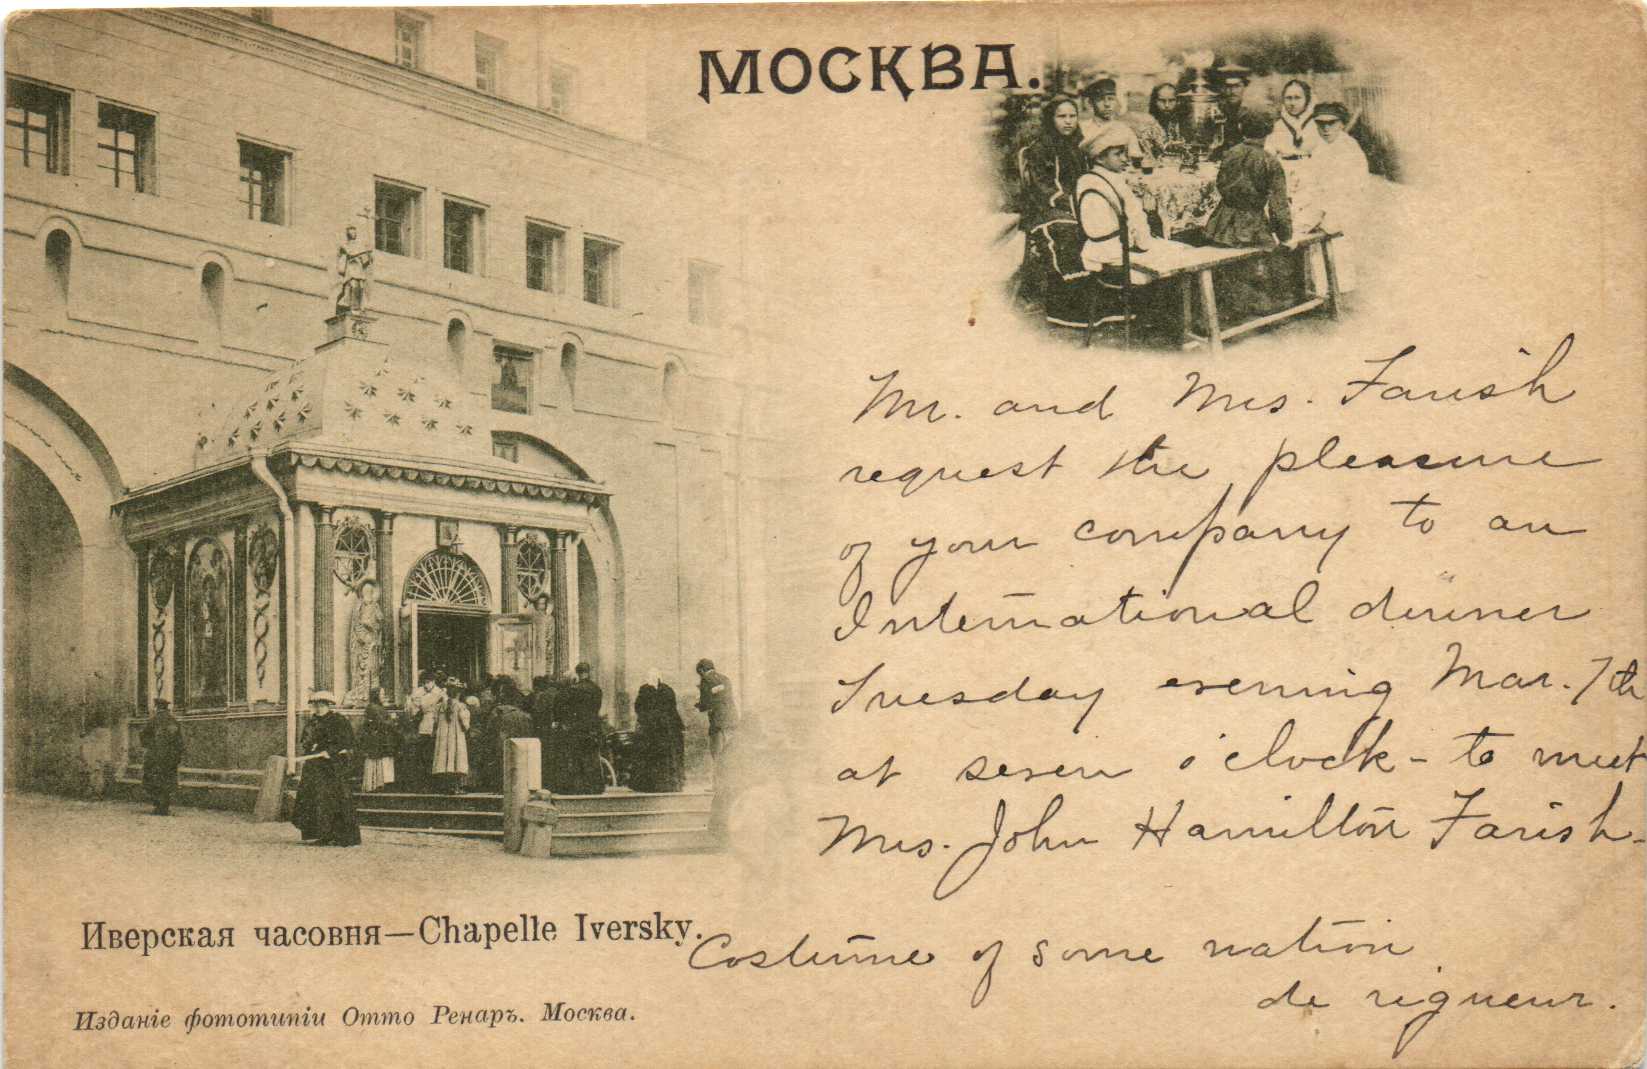 МОСКВА.
Mr. and Mrs. Farish
request the pleasure
of your company to an
International dinner
Tuesday evening Mar. 7th
at seven o'clock - to meet
Mrs. John Hamilton Farish -
Costume of some nation
de rigueur.
Иверская часовня—Chapelle Iversky.
Изданіе фототипіи Отто Ренаръ. Москва.